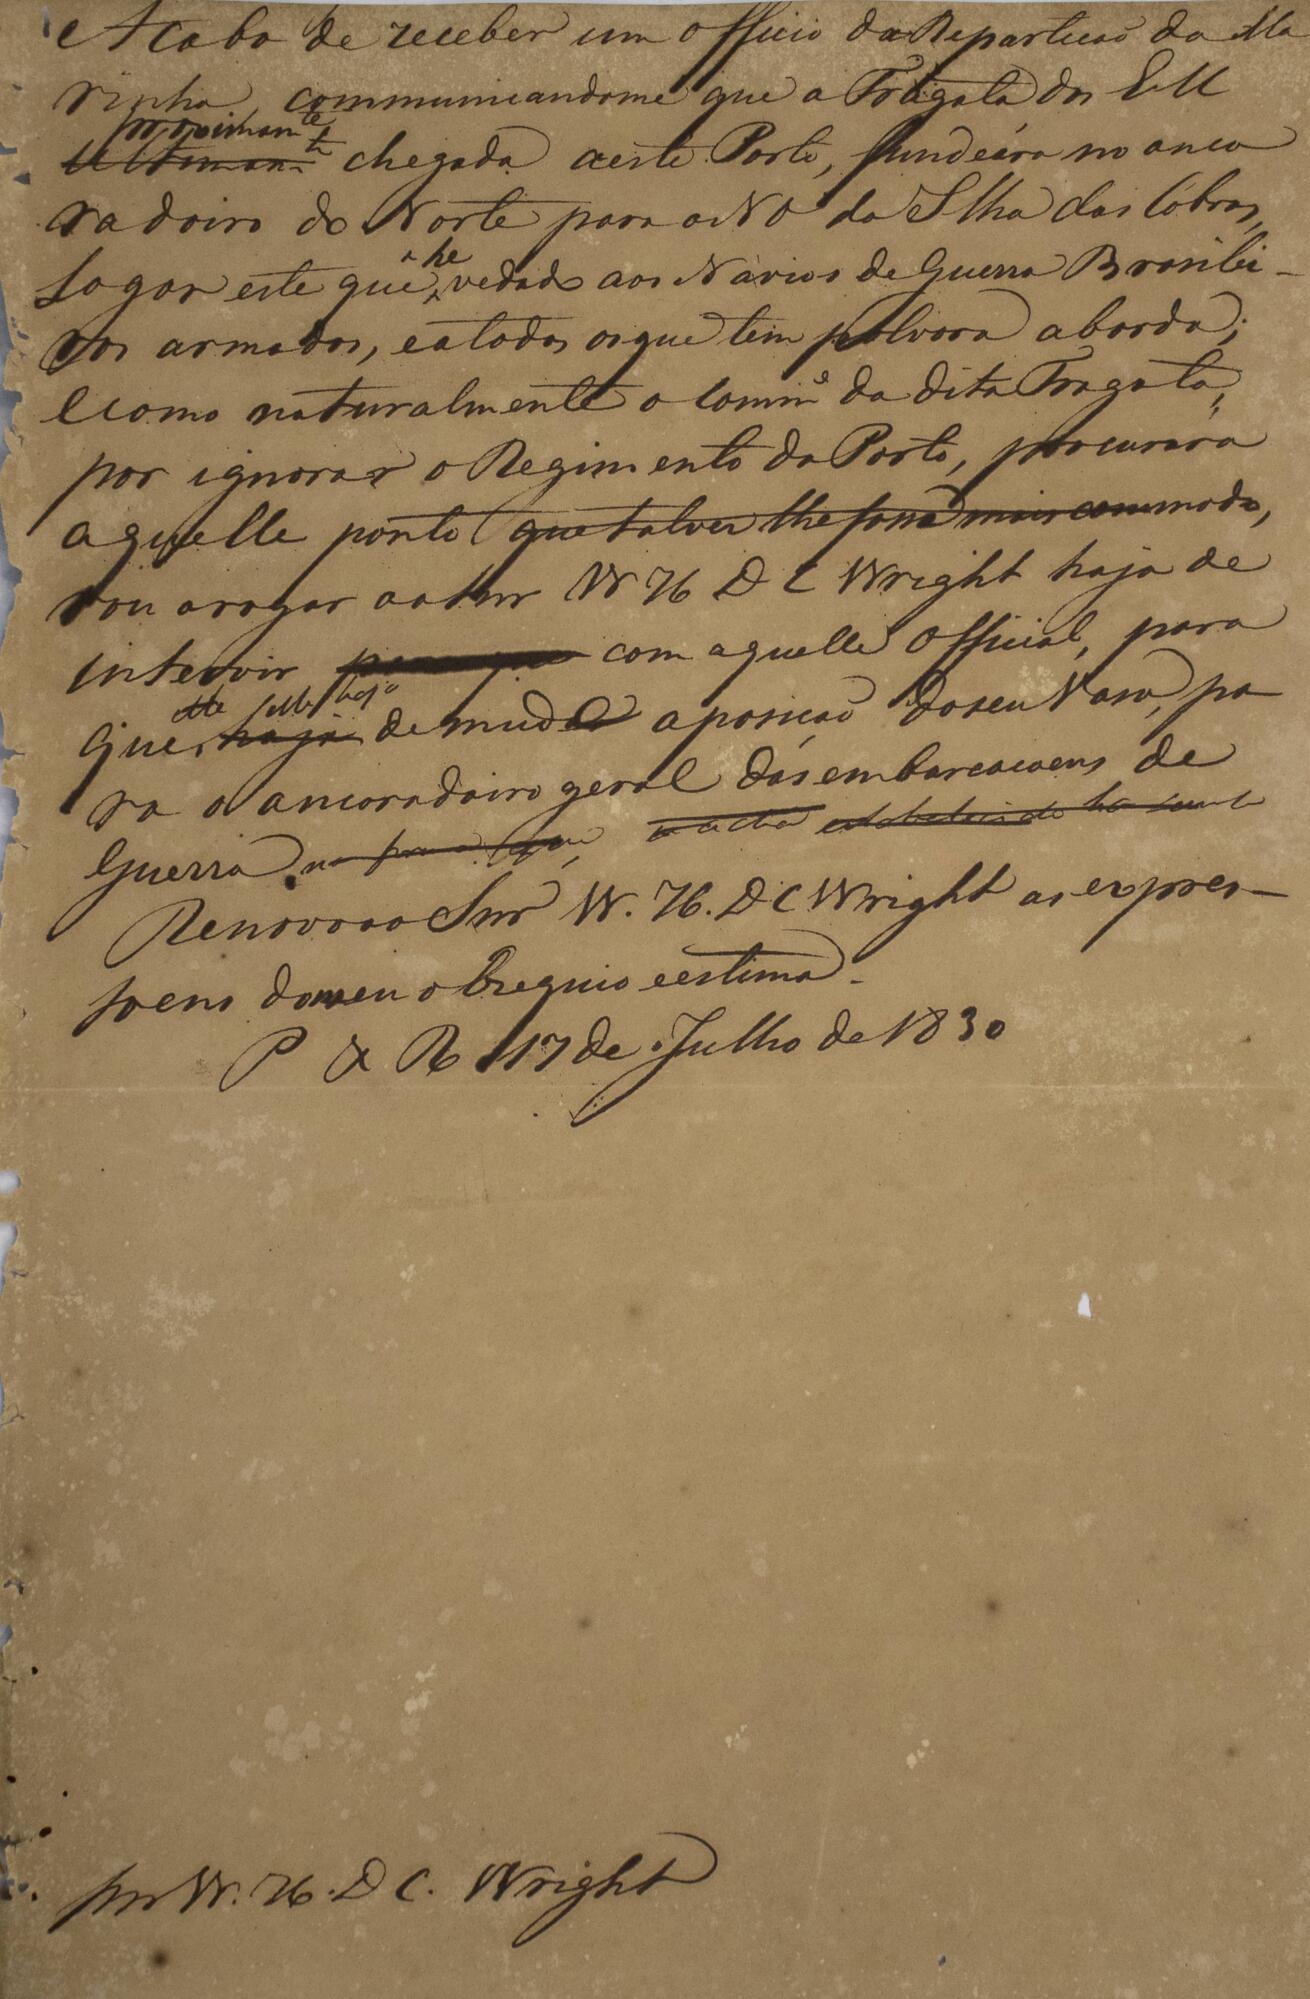 Acabo de receber um officio da Repartição da Ma
rinha, communicandome que a Fragata dos E U
proximamte
ultimamte chegada a este Porto, fundeára no anco
radoiro do Norte para o NO da Ilha das Cobras,
he
Logar este que vedado aos Navios de Guerra Brasilei-
ros armados, e a todos os que tem polvora a bordo;
E como naturalmente o Comme da dita Fragata,
por ignorar o Regimento do Porto, procurára
aquelle ponto que talvez lhe fosse mais commodo,
vou a rogar ao Snr W H D C Wright haja de
intervir com aquelle official, para
elle haja
que haja de mudar a posição do seu Vaso, pa
ra o ancoradoiro geral das embarcacoens de
Guerra.
Renovo ao Snr W. H. D C Wright as expres-
soens do meu obsequio e estima.
P a R 17 de Julho de 1830
Snr W. H. D C. Wright